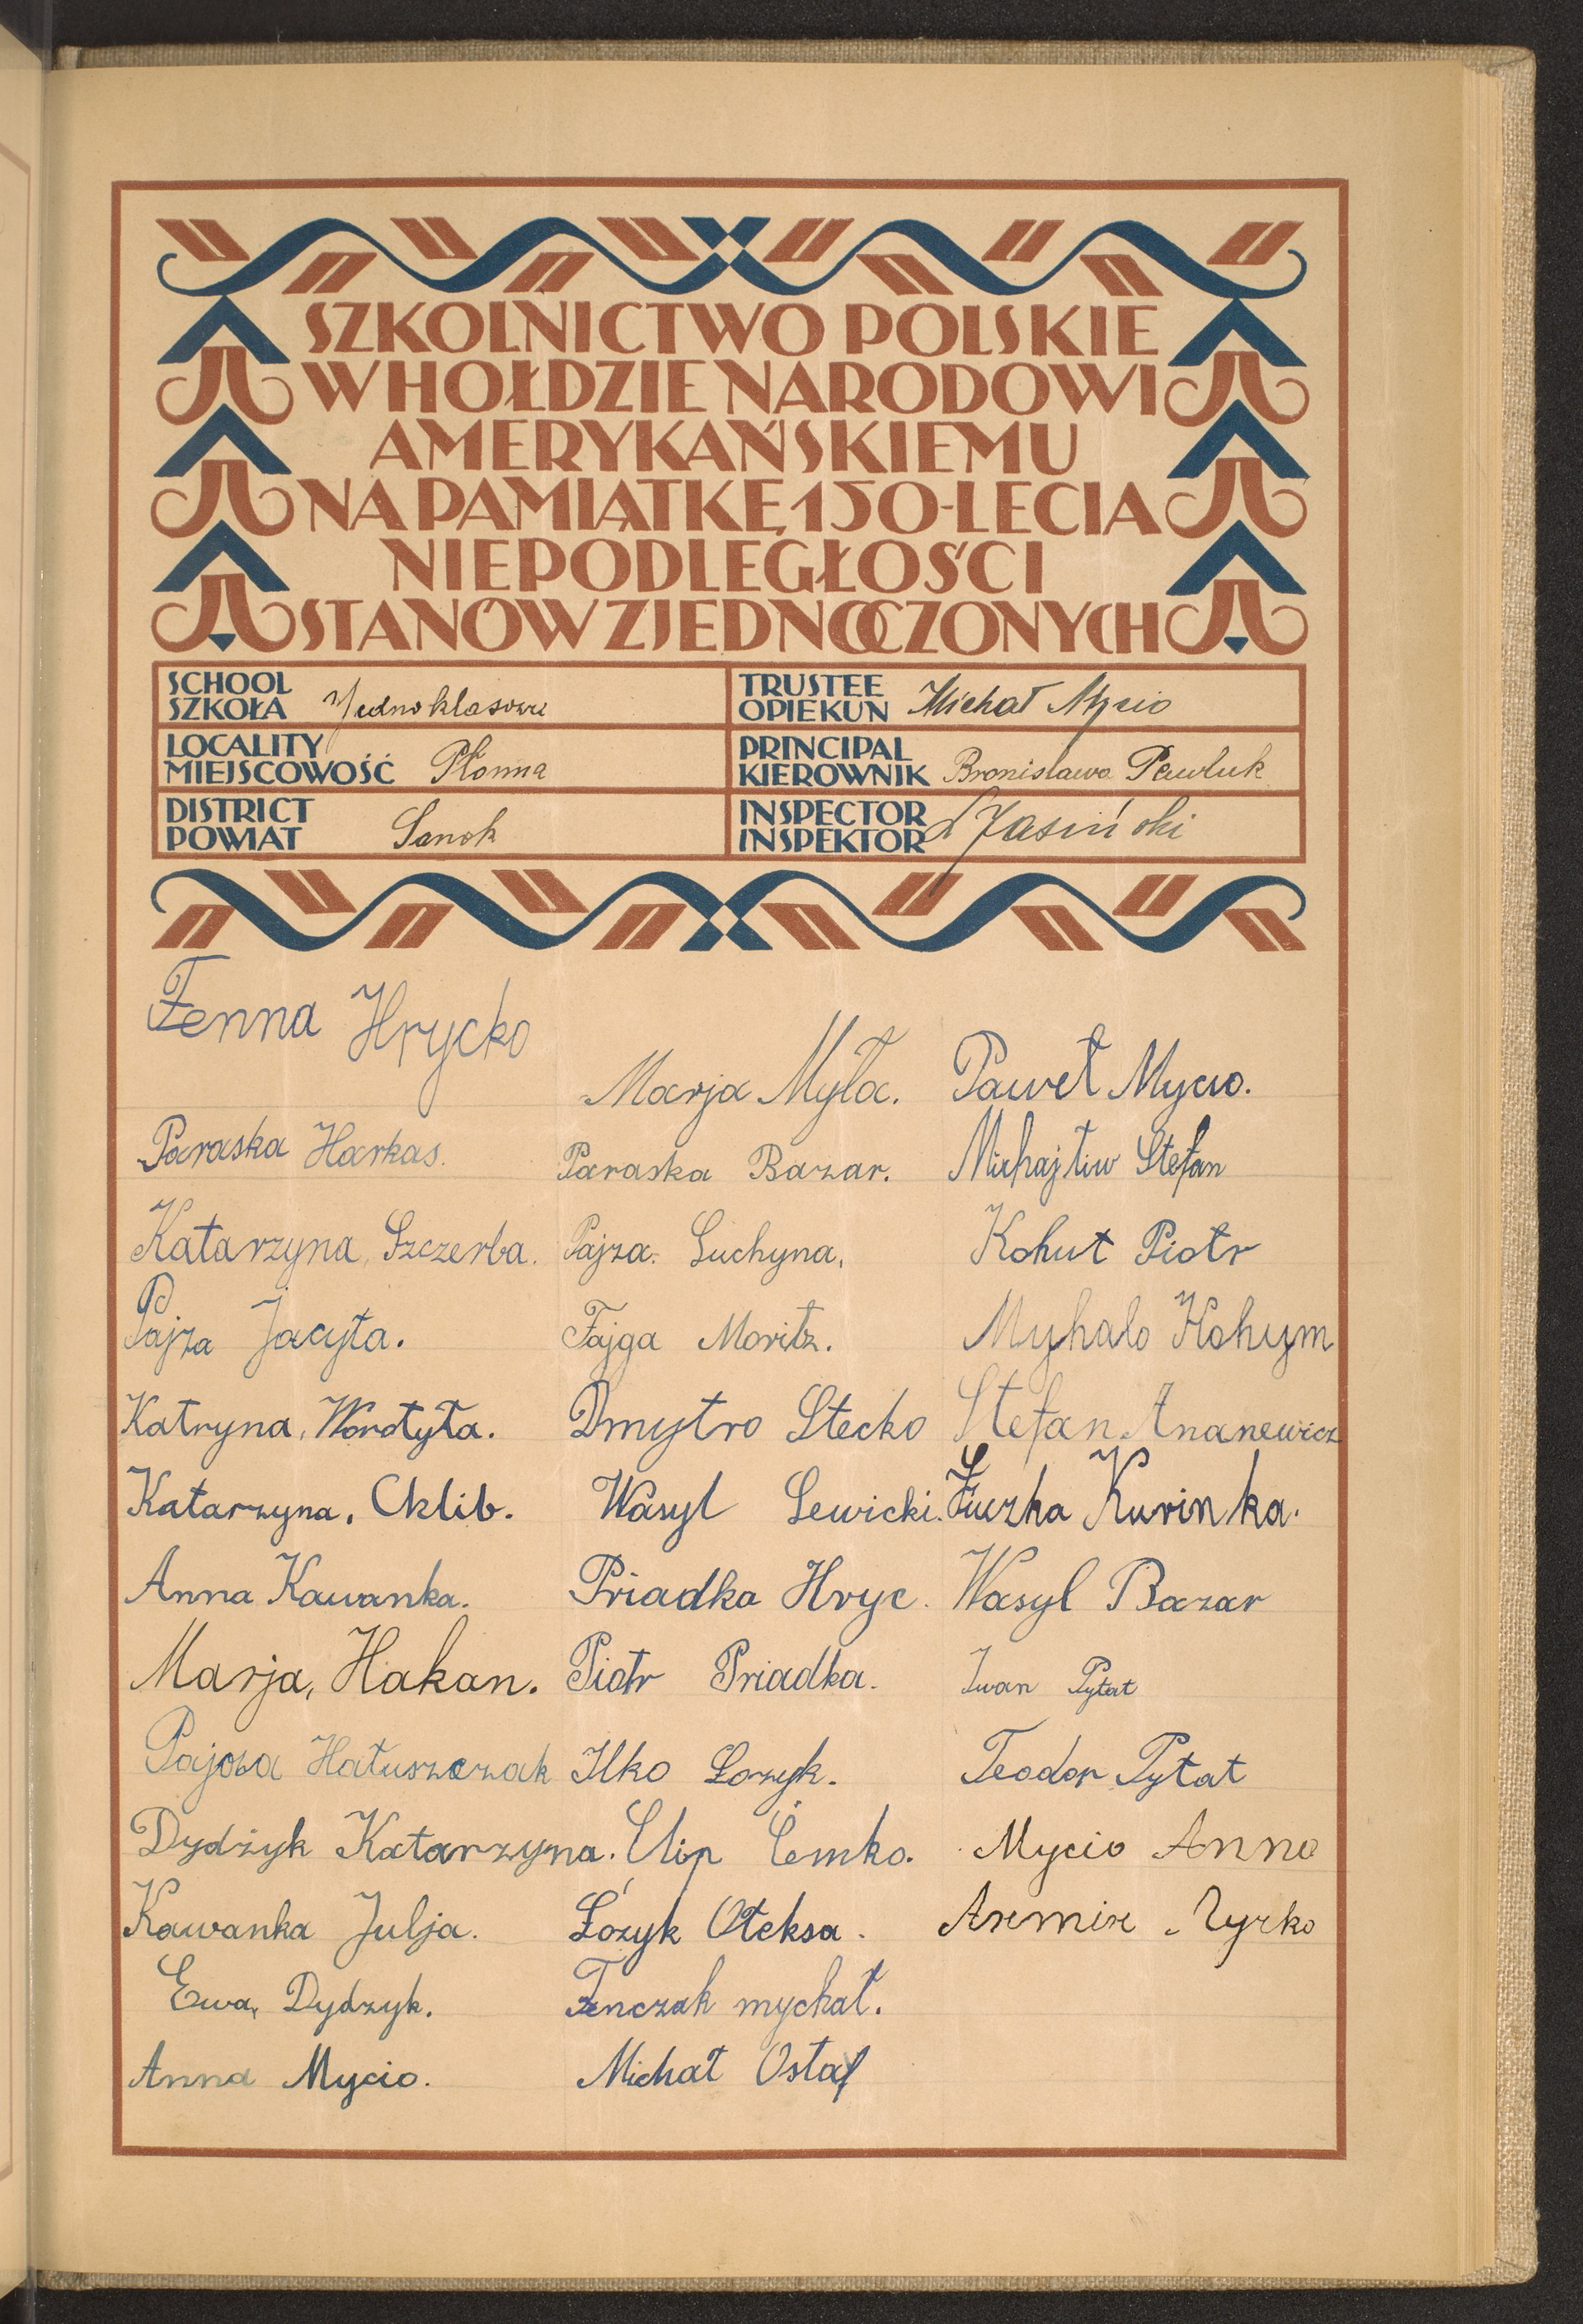 SZKOLNICTWO POLSKIE
W HOŁDZIE NARODOWI
AMERYKAŃSKIEMU
NA PAMIĄTKĘ 150-LECIA
NIEPODLEGŁOŚCI
STANÓW ZJEDNOCZONYCH
SCHOOL
SZKOŁA Jednoklasowa
TRUSTEE
OPIEKUN Michał Mycio
LOCALITY
MIEJSCOWOŚĆ Płonna
PRINCIPAL
KIEROWNIK Bronisława Pawluk
DISTRICT
POWIAT Sanok
INSPECTOR
INSPEKTOR Jasiński
Fenna Hrycko
Paraska Harkas.
Katarzyna, Szczerba.
Pajza Jacyta.
Katryna, Worotyła.
Katarzyna, Cklib.
Anna Kawanka.
Marja, Hakan.
Hatuszczak
Dydżyk Katarzyna.
Kawanka Julja.
Ewa, Dydzyk.
Anna Mycio.
Marja Myła.
Paraska Bazar.
Pajza. Suchyna.
Fajga Moritz.
Dmytro Stecko
Wasyl Lewicki.
Priadka Hryc.
Piotr Priadka.
Ilko Łozyk.
Łozyk Ołeksa.
Fenczak mychał.
Michał Ostaf
Paweł Mycio.
Michajłiw Stefan
Kohut Piotr
Myhalo Kohym
Stefan Ananewicz
Kurinka.
Wasyl Bazar
Iwan Pytat
Teodor Pytat
Mycio Anna